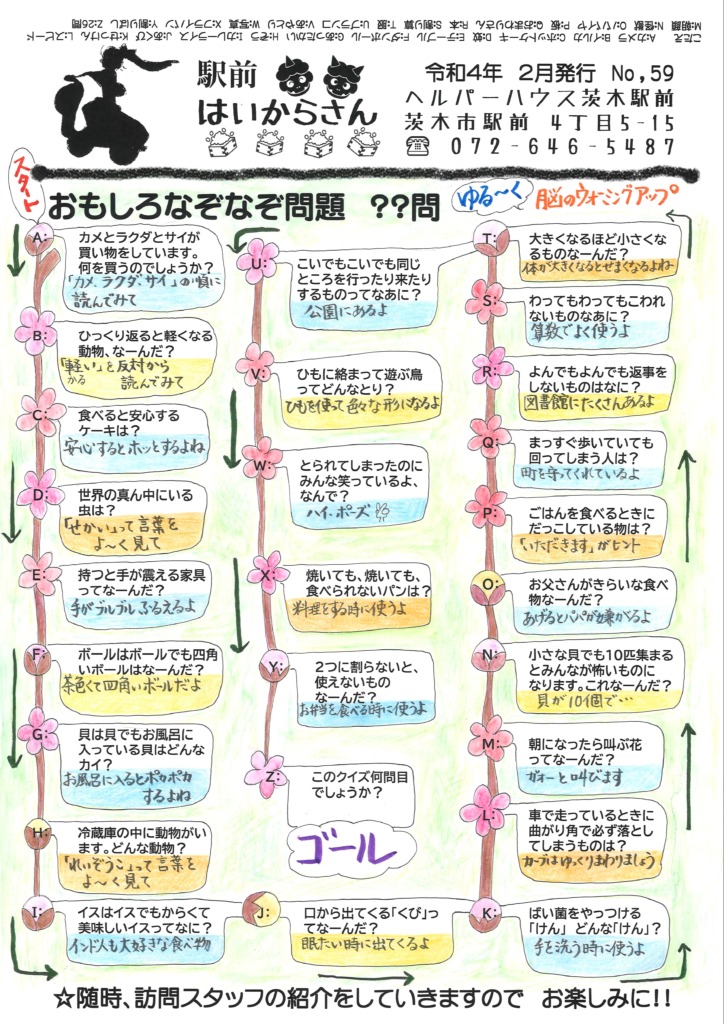 こたえ A:カメラ B:イルカ C:ホットケーキ D:蚊 E:テーブル F:ダンボール G:あったかい H:ぞう I:カレーライス J:あくび K:せっけん L:スピード
M:朝顔 N:怪獣 O:パパイヤ P:板 Q:おまわりさん R:本 S:割り算 T:服 U:ブランコ V:あやとり W:写真 X:フライパン Y:割りばし Z:26問
駅前
はいからさん
令和4年 2月発行 No,59
ヘルパーハウス茨木駅前
茨木市駅前 4丁目5-15
☎ 072-646-5487
スタート
おもしろなぞなぞ問題 ??問
ゆる〜く
脳のウォーミングアップ
A:
カメとラクダとサイが
買い物をしています。
何を買うのでしょうか?
「カメ、ラクダ、サイ」の順に
読んでみて
B:
ひっくり返ると軽くなる
動物、なーんだ?
「軽い」を反対から
かる
読んでみて
C:
食べると安心する
ケーキは?
安心するとホッとするよね
D:
世界の真ん中にいる
虫は?
「せかい」って言葉を
よ〜く見て
E:
持つと手が震える家具
ってなーんだ?
手がブルブルふるえるよ
F:
ボールはボールでも四角
いボールはなーんだ?
茶色くて四角いボールだよ
G:
貝は貝でもお風呂に
入っている貝はどんな
カイ?
お風呂に入るとポカポカ
するよね
H:
冷蔵庫の中に動物がい
ます。どんな動物?
「れいぞうこ」って言葉を
よ〜く見て
I:
イスはイスでもからくて
美味しいイスってなに?
インド人も大好きな食べ物
J:
口から出てくる「くび」っ
てなーんだ?
眠たい時に出てくるよ
K:
ばい菌をやっつける
「けん」 どんな「けん」?
手を洗う時に使うよ
L:
車で走っているときに
曲がり角で必ず落とし
てしまうものは?
カーブはゆっくりまわりましょう
M:
朝になったら叫ぶ花
ってなーんだ?
ガォーと叫びます
N:
小さな貝でも10匹集まる
とみんなが怖いものに
なります。これなーんだ?
貝が10個で…
O:
お父さんがきらいな食べ
物なーんだ?
あげるとパパが嫌がるよ
P:
ごはんを食べるときに
だっこしている物は?
「いただきます」がヒント
Q:
まっすぐ歩いていても
回ってしまう人は?
町を守ってくれているよ
R:
よんでもよんでも返事を
しないものはなに?
図書館にたくさんあるよ
S:
わってもわってもこわれ
ないものなあに?
算数でよく使うよ
T:
大きくなるほど小さくな
るものなーんだ?
体が大きくなるとせまくなるよね
U:
こいでもこいでも同じ
ところを行ったり来たり
するものってなあに?
公園にあるよ
V:
ひもに絡まって遊ぶ鳥
ってどんなとり?
ひもを使って色々な形になるよ
W:
とられてしまったのに
みんな笑っているよ、
なんで?
ハイ、ポーズ
X:
焼いても、焼いても、
食べられないパンは?
料理をする時に使うよ
Y:
2つに割らないと、
使えないもの
なーんだ?
お弁当を食べる時に使うよ
Z:
このクイズ何問目
でしょうか?
ゴール
☆随時、訪問スタッフの紹介をしていきますので お楽しみに!!